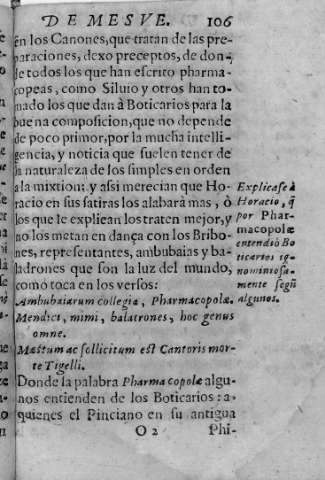 DE MESVE. 106
en los Canones, que tratan de las pre-
paraciones, dexo preceptos, de don-
de todos los que han escrito pharma-
copeas, como Siluio y otros han to-
mado los que dan à Boticarios para la
buena composicion, que no depende
de poco primor, por la mucha intelli-
gencia, y noticia que suelen tener de
la naturaleza de los simples en orden
a la mixtion: y assi merecian que Ho-
racio en sus satiras los alabara mas, ò
los que le explican los traten mejor, y
no los metan en dança con los Bribo-
nes, representantes, ambubaias y ba-
ladrones que son la luz del mundo,
como toca en los versos:
Ambubaiarum collegia, Pharmacopolæ.
Mendici, mimi, balatrones, hoc genus
omne.
Mæstum ac sollicitum est Cantoris mor-
te Tigelli.
Donde la palabra Pharmacopolæ algu-
nos entienden de los Boticarios: a
quienes el Pinciano en su antigua
O 2 Phi-
Explicase à
Horacio, q̃
por Phar-
macopolæ
entendiò Bo
ticarios ig-
nominiosa-
mente segũ
algunos.